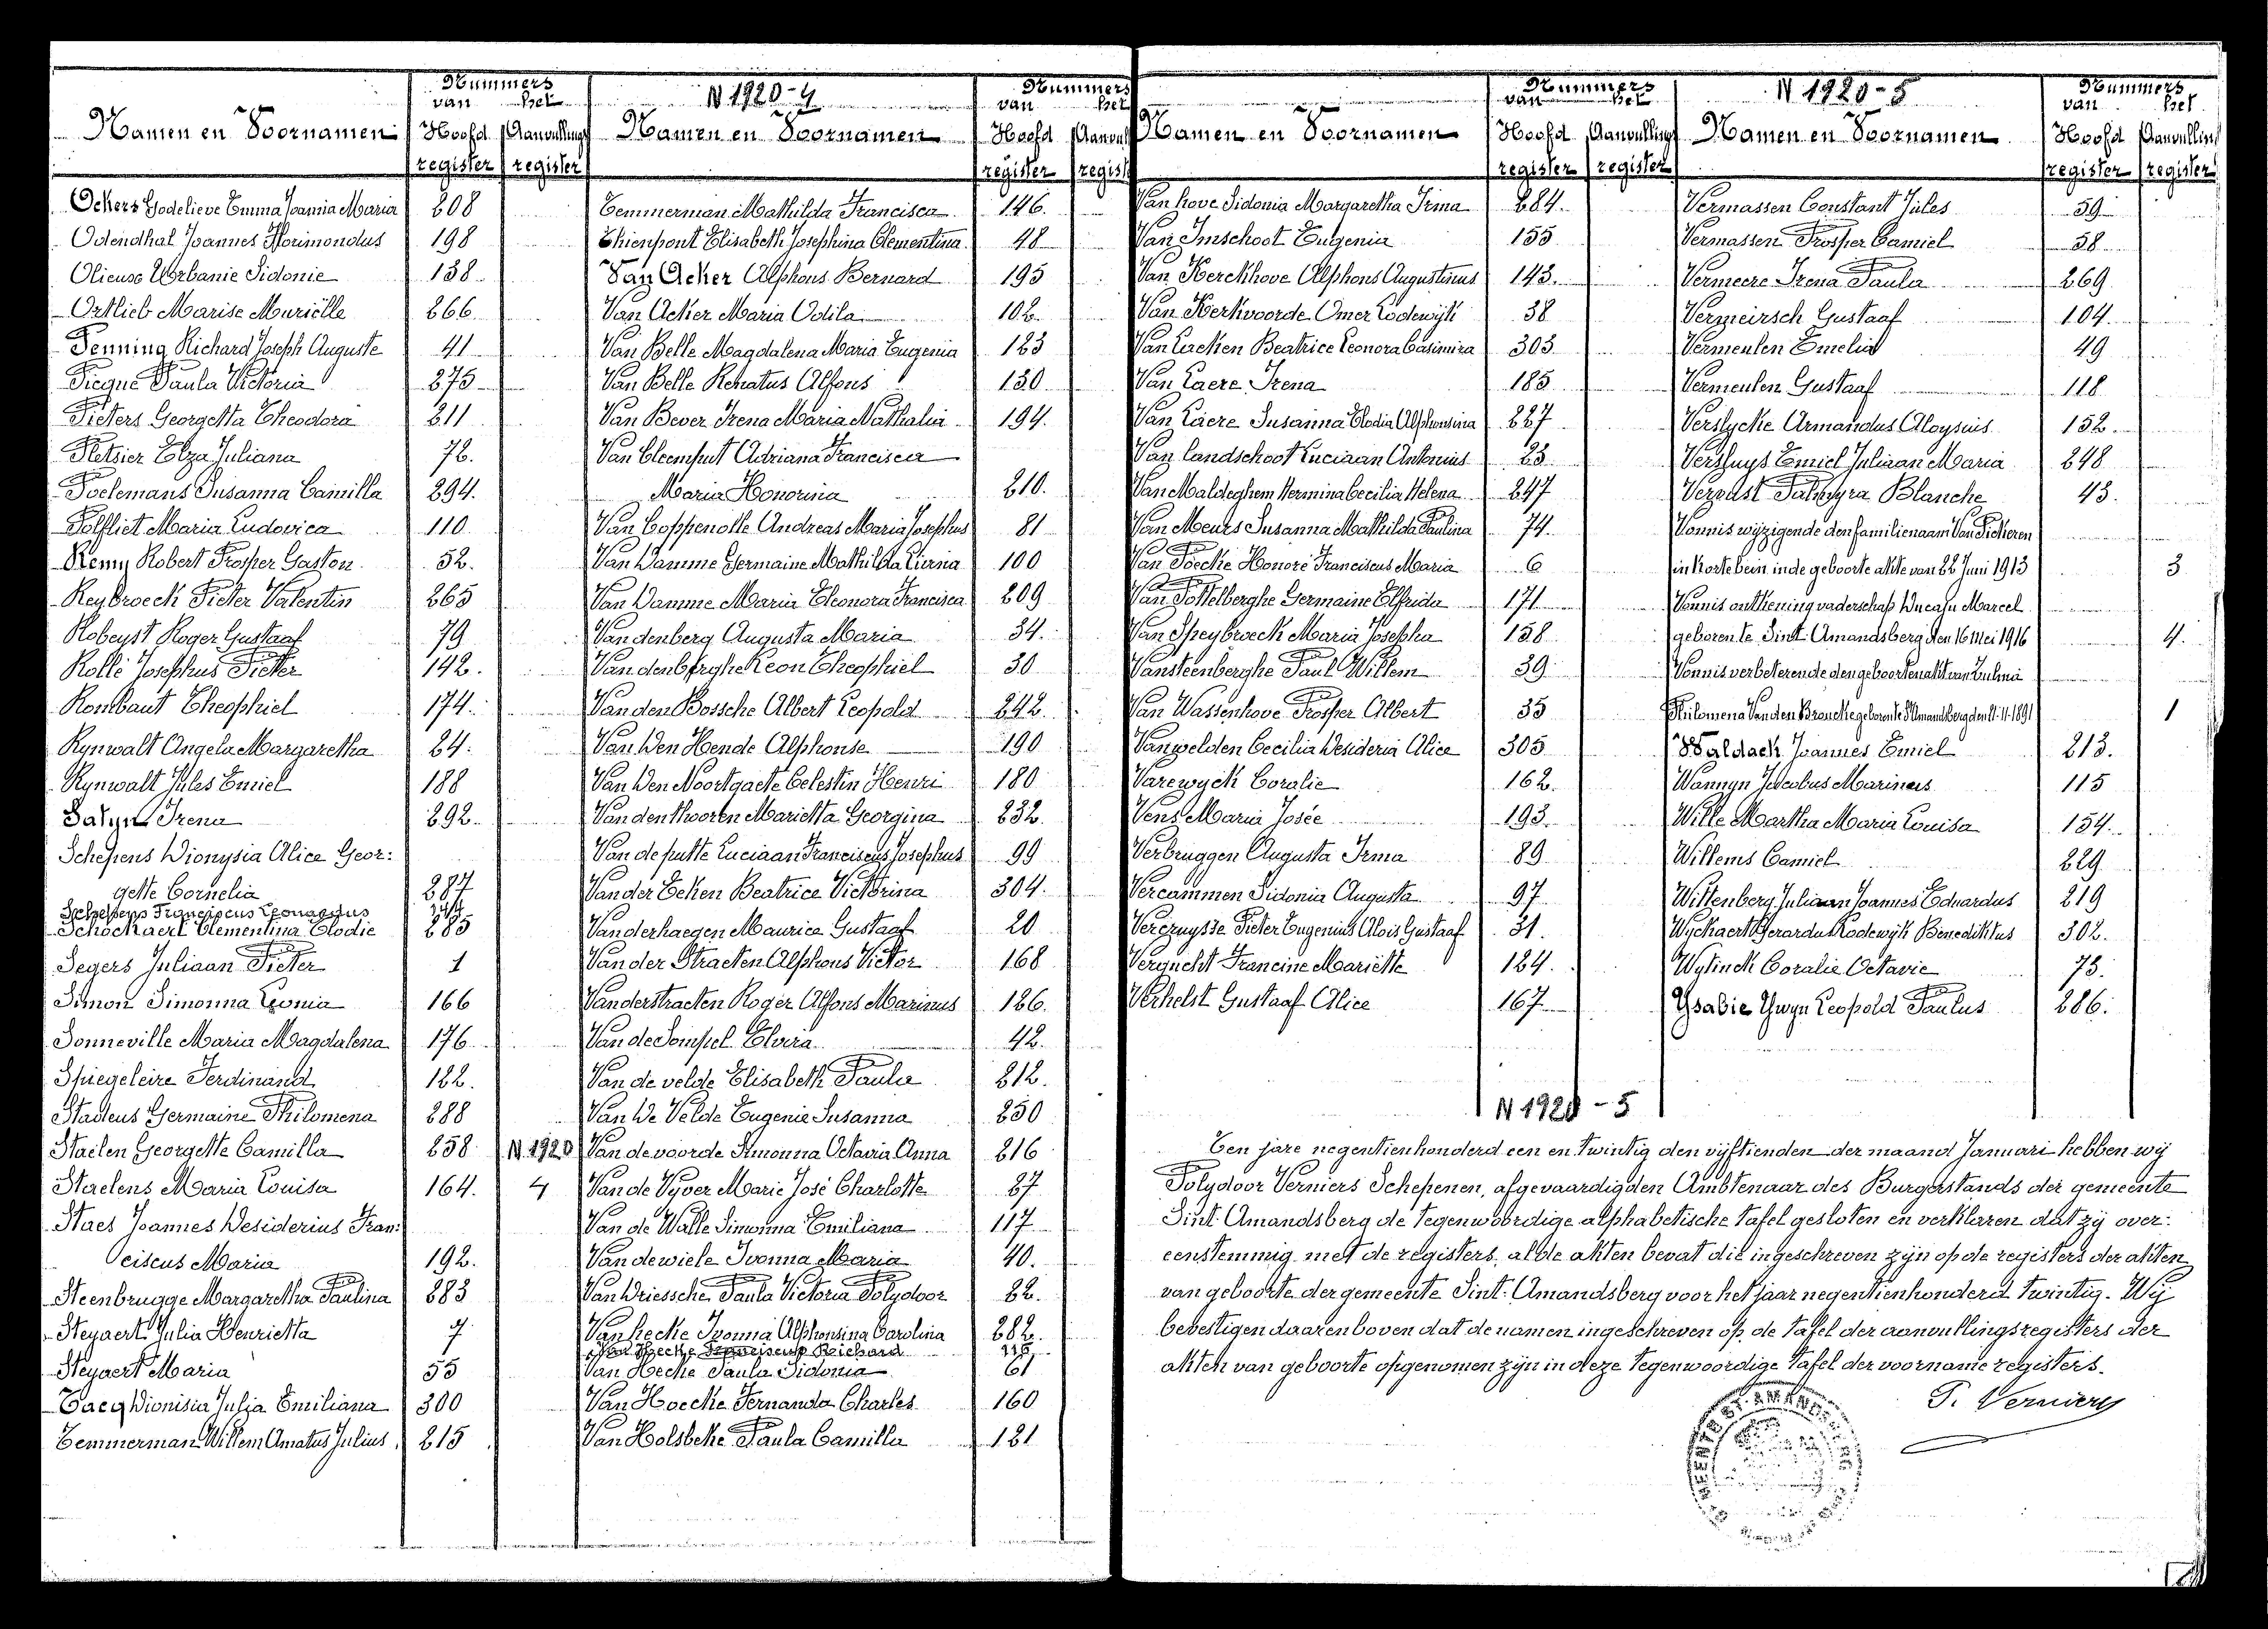 Namen en Voornamen
Nummers
van het
Hoofd Aanvullings
register register
Ockers Godelieve Emma Joannia Maria 208
Odendhal Joannes Florimondus 198
Olieuse Urbanie Sidonie 138
Ortlieb Marise Murielle 266
Penning Richard Joseph Auguste 41
Picque Paula Victoria 275
Pieters Georgetta Theodora 211
Pletsier Elza Juliana 72.
Poelemans Susanna Camilla 294.
Polfliet Maria Ludovica 110
Remy Robert Prosper Gaston 52.
Reybroeck Pieter Valentin 265
Robeyst Roger Gustaaf 79
Rollé Josephus Pieter 142.
Rombaut Theophiel 174.
Rynwalt Angela Margaretha 24.
Rynwalt Jules Emiel 188
Satyn Irena 292.
Schepens Dionysia Alice Geor:
gette Cornelia 287
Schepens Franciscus Leonardus
Schockaert Clementina Elodie 285
Segers Juliaan Pieter 1
Simon Simonna Leonia 166
Sonneville Maria Magdalena 176
Spiegeleire Ferdinand 122.
Stadeus Germaine Philomena 288
Staelen Georgette Camilla 258 N 1920
Staelens Maria Louisa 164. 4
Staes Joannes Desiderius Fran:
ciscus Maria 192.
Steenbrugge Margaretha Paulina 283
Steyaert Julia Henrietta 7
Steyaert Maria 55
Tacq Dionisia Julia Emiliana 300
Temmerman Willem Amatus Julius 215
N 1920-4
Namen en Voornamen
Nummers
van het
Hoofd Aanvul
register regist
Temmerman Mathilda Francisca 146.
Thienpont Elisabeth Josephina Clementina 48
Van Acker Alphons Bernard 195
Van Acker Maria Odila 102.
Van Belle Magdalena Maria Eugenia 123
Van Belle Renatus Alfons 130
Van Bever Irena Maria Nathalia 194.
Van Cleemput Adriana Francisca
Maria Honorina 210.
Van Coppenolle Andreas Maria Josephus 81
Van Damme Germaine Mathilda 100
Van Damme Maria Eleonora Francisca 209
Vandenberg Augusta Maria 34.
Vandenberghe Leon Theophiel 30
Van den Bossche Albert Leopold 242.
Van Den Hende Alphonse 190
Van Den Noortgaete Celestin Henri 180
Vandenthooren Marietta Georgina 232.
Van de putte Luciaan Franciscus Josephus 99
Van der Eeken Beatrice Victorina 304.
Vanderhaegen Maurice Gustaaf 20
Van der Straeten Alphons Victor 168
Vanderstraeten Roger Alfons Marinus 126.
Van de Sompel Elvira 42.
Van de velde Elisabeth Paula 212.
Van De Velde Eugenie Susanna 250
Van de voorde Simonna Octavia Anna 216
Van de Vyver Marie José Charlotte 27
Van de Walle Simonna Emiliana 117
Vandewiele Ivonna Maria 40.
Van Driessche Paula Victoria Polydoor 22.
Van hecke Ivonna Alphonsina Carolina 282.
Van Hecke Franciscus Richard 116
Van Hecke Paula Sidonia 61
Van Hoecke Fernanda Charles 160
Van Holsbeke Paula Camilla 121
Namen en Voornamen
Nummers
van het
Hoofd Aanvulling
register register
Van hove Sidonia Margaretha Irma 284.
Van Imschoot Eugenia 155
Van Kerckhove Alphons Augustinus 143.
Van Kerkvoorde Omer Lodewijk 38
Van Laeken Beatrice Leonora Casimira 303
Van Laere Irena 185
Van Laere Susanna Elodia Alphonsina 227
Van landschoot Luciaan Antonius 23
Van Maldeghem Hermina Cecilia Helena 247
Van Meurs Susanna Mathilda Paulina 74.
Van Poecke Honoré Franciscus Maria 6
Van Pottelberghe Germaine Elfrida 171
Van Speybroeck Maria Josepha 158
Vansteenberghe Paul Willem 39
Van Wassenhove Prosper Albert 35
Vanwelden Cecilia Desideria Alice 305
Varewyck Coralie 162.
Vens Maria Josée 193.
Verbruggen Augusta Irma 89
Vercammen Sidonia Augusta 97
Vercruysse Pieter Eugenius Alois Gustaaf 31.
Vergucht Francine Mariette 124.
Verhelst Gustaaf Alice 167
N 1920-5
Namen en Voornamen
Nummers
van het
Hoofd Aanvulling
register register
Vermassen Constant Jules 59
Vermassen Prosper Camiel 58
Vermeere Irena Paula 269
Vermeirsch Gustaaf 104.
Vermeulen Emelia 49
Vermeulen Gustaaf 118
Verslycke Armandus Aloysius 152.
Versluys Emiel Juliaan Maria 248
Vervust Palmyra Blanche 43.
Vonnis wijzigende den familienaam Van Pickeren
in Kortebein in de geboorte akte van 22 Juni 1913 3
Vonnis ontkening vaderschap Ducaju Marcel
geboren te Sint Amandsberg den 16 Mei 1916 4.
Vonnis verbeterende den geboortenakt van Zulma
Philomena Van den Broucke geboren te St Amandsberg den 11-11-1891 1
Waldack Joannes Emiel 213.
Wannyn Jacobus Marinus 115
Wille Martha Maria Louisa 154.
Willems Camiel 229
Wittenberg Juliaan Joannes Eduardus 219
Wyckaert Gerardus Lodewijk Benediktus 302.
Wytinck Coralie Octavie 73.
Ysabie Ywyn Leopold Paulus 286.
N 1920-5
Ten jare negentienhonderd een en twintig den vijftienden der maand Januari hebben wij
Polydoor Verniers Schepenen, afgevaardigden Ambtenaar des Burgerstands der gemeente
Sint-Amandsberg de tegenwoordige alphabetische tafel gesloten en verklaren dat zij over:
eenstemmig met de registers, al de akten bevat die ingeschreven zijn op de registers der akten
van geboorte der gemeente Sint-Amandsberg voor het jaar negentienhonderd twintig. Wij
bevestigen daarenboven dat de namen ingeschreven op de tafel der aanvullingsregisters der
akten van geboorte opgenomen zijn in deze tegenwoordige tafel der voorname registers.
P. Verniers